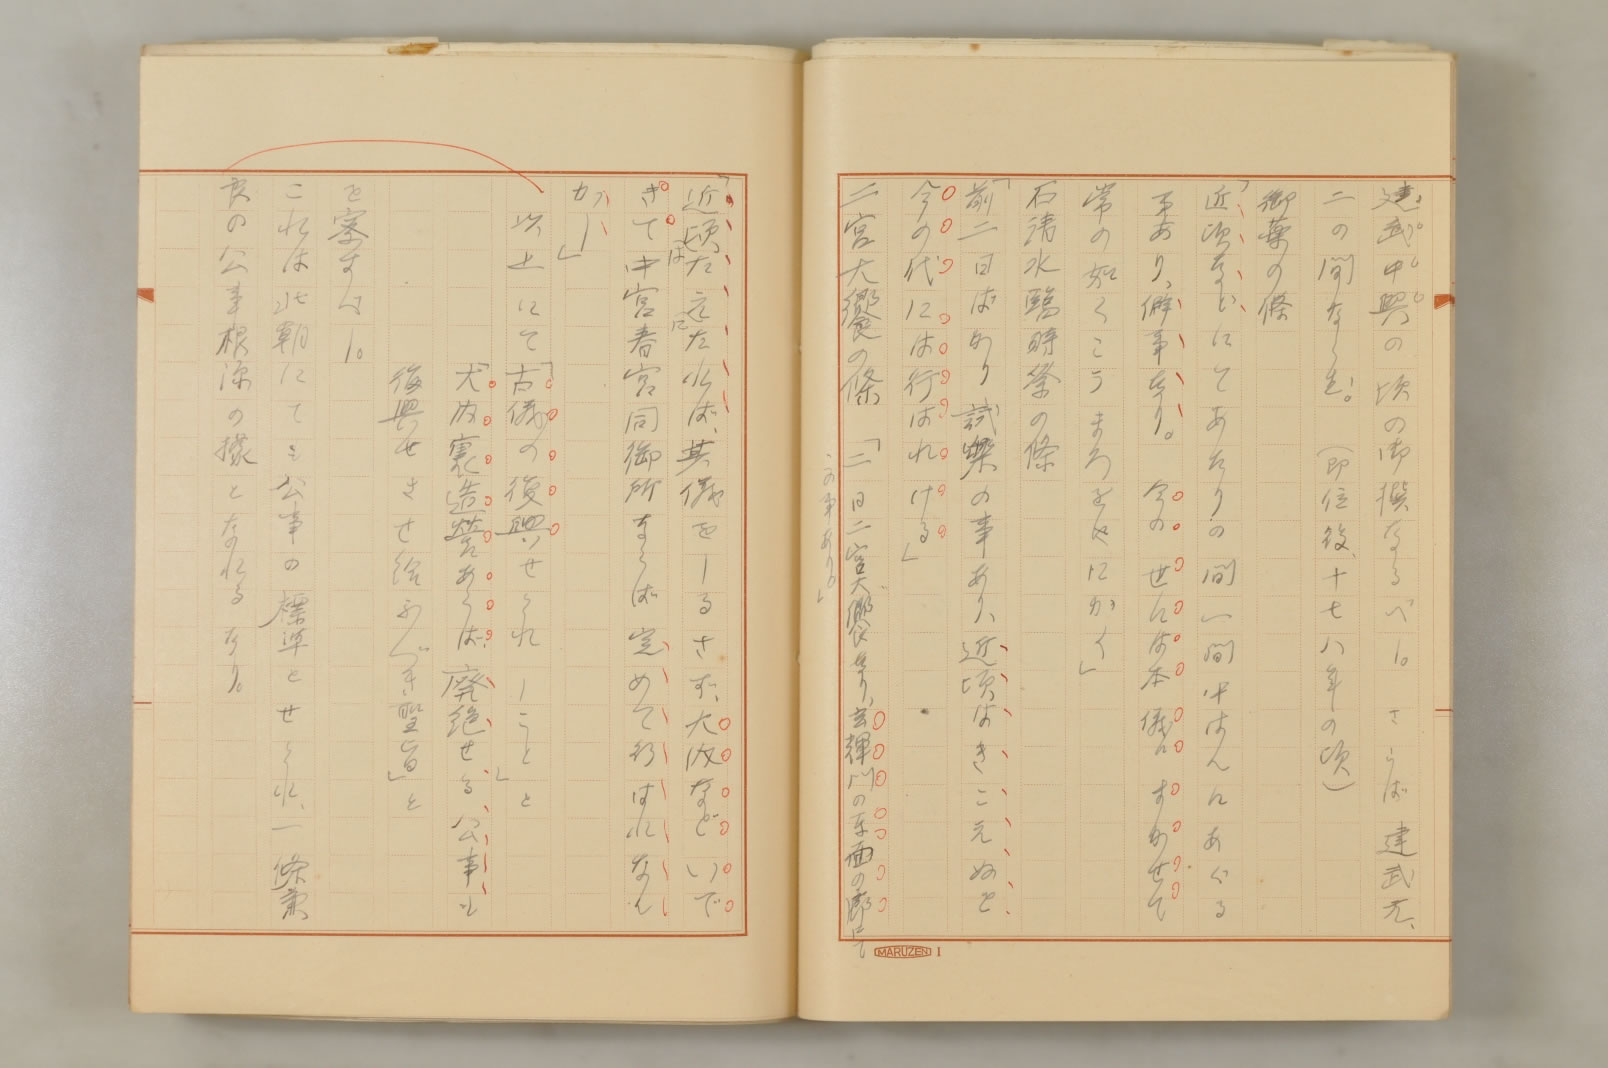 建武中興の頃の御撰なるべし。さらば建武元、
二の間ならむ。(即位後、十七八年の頃)
御薬の條
「近頃などにてあたりの間一間半ばんにあぐる
事あり、僻事なり。 今の世には本儀にまかせて
常の如くこうまろをめにかく」
石清水臨時祭の條
「前二日ばかり試樂の事あり、近頃はきこえぬを
今の代には行はれける」
二宮大饗の條 「二日二宮大饗あり、玄輝門の東面の廊にて
この事あり。」
「近頃はたえにたれば、其儀をしるさず、大内などいで
きて中宮春宮同御所ならば定めて行はれなん
かし」
以上にて「古儀の復興せられしこと」と
「大内裏造営あらば廃絶せる公事も
復興せさせ給ふべき聖旨」と
を察すべし。
これは北朝にても公事の標準とせられ、一條兼
良の公事根源の據となれるなり。
MARUZEN 1